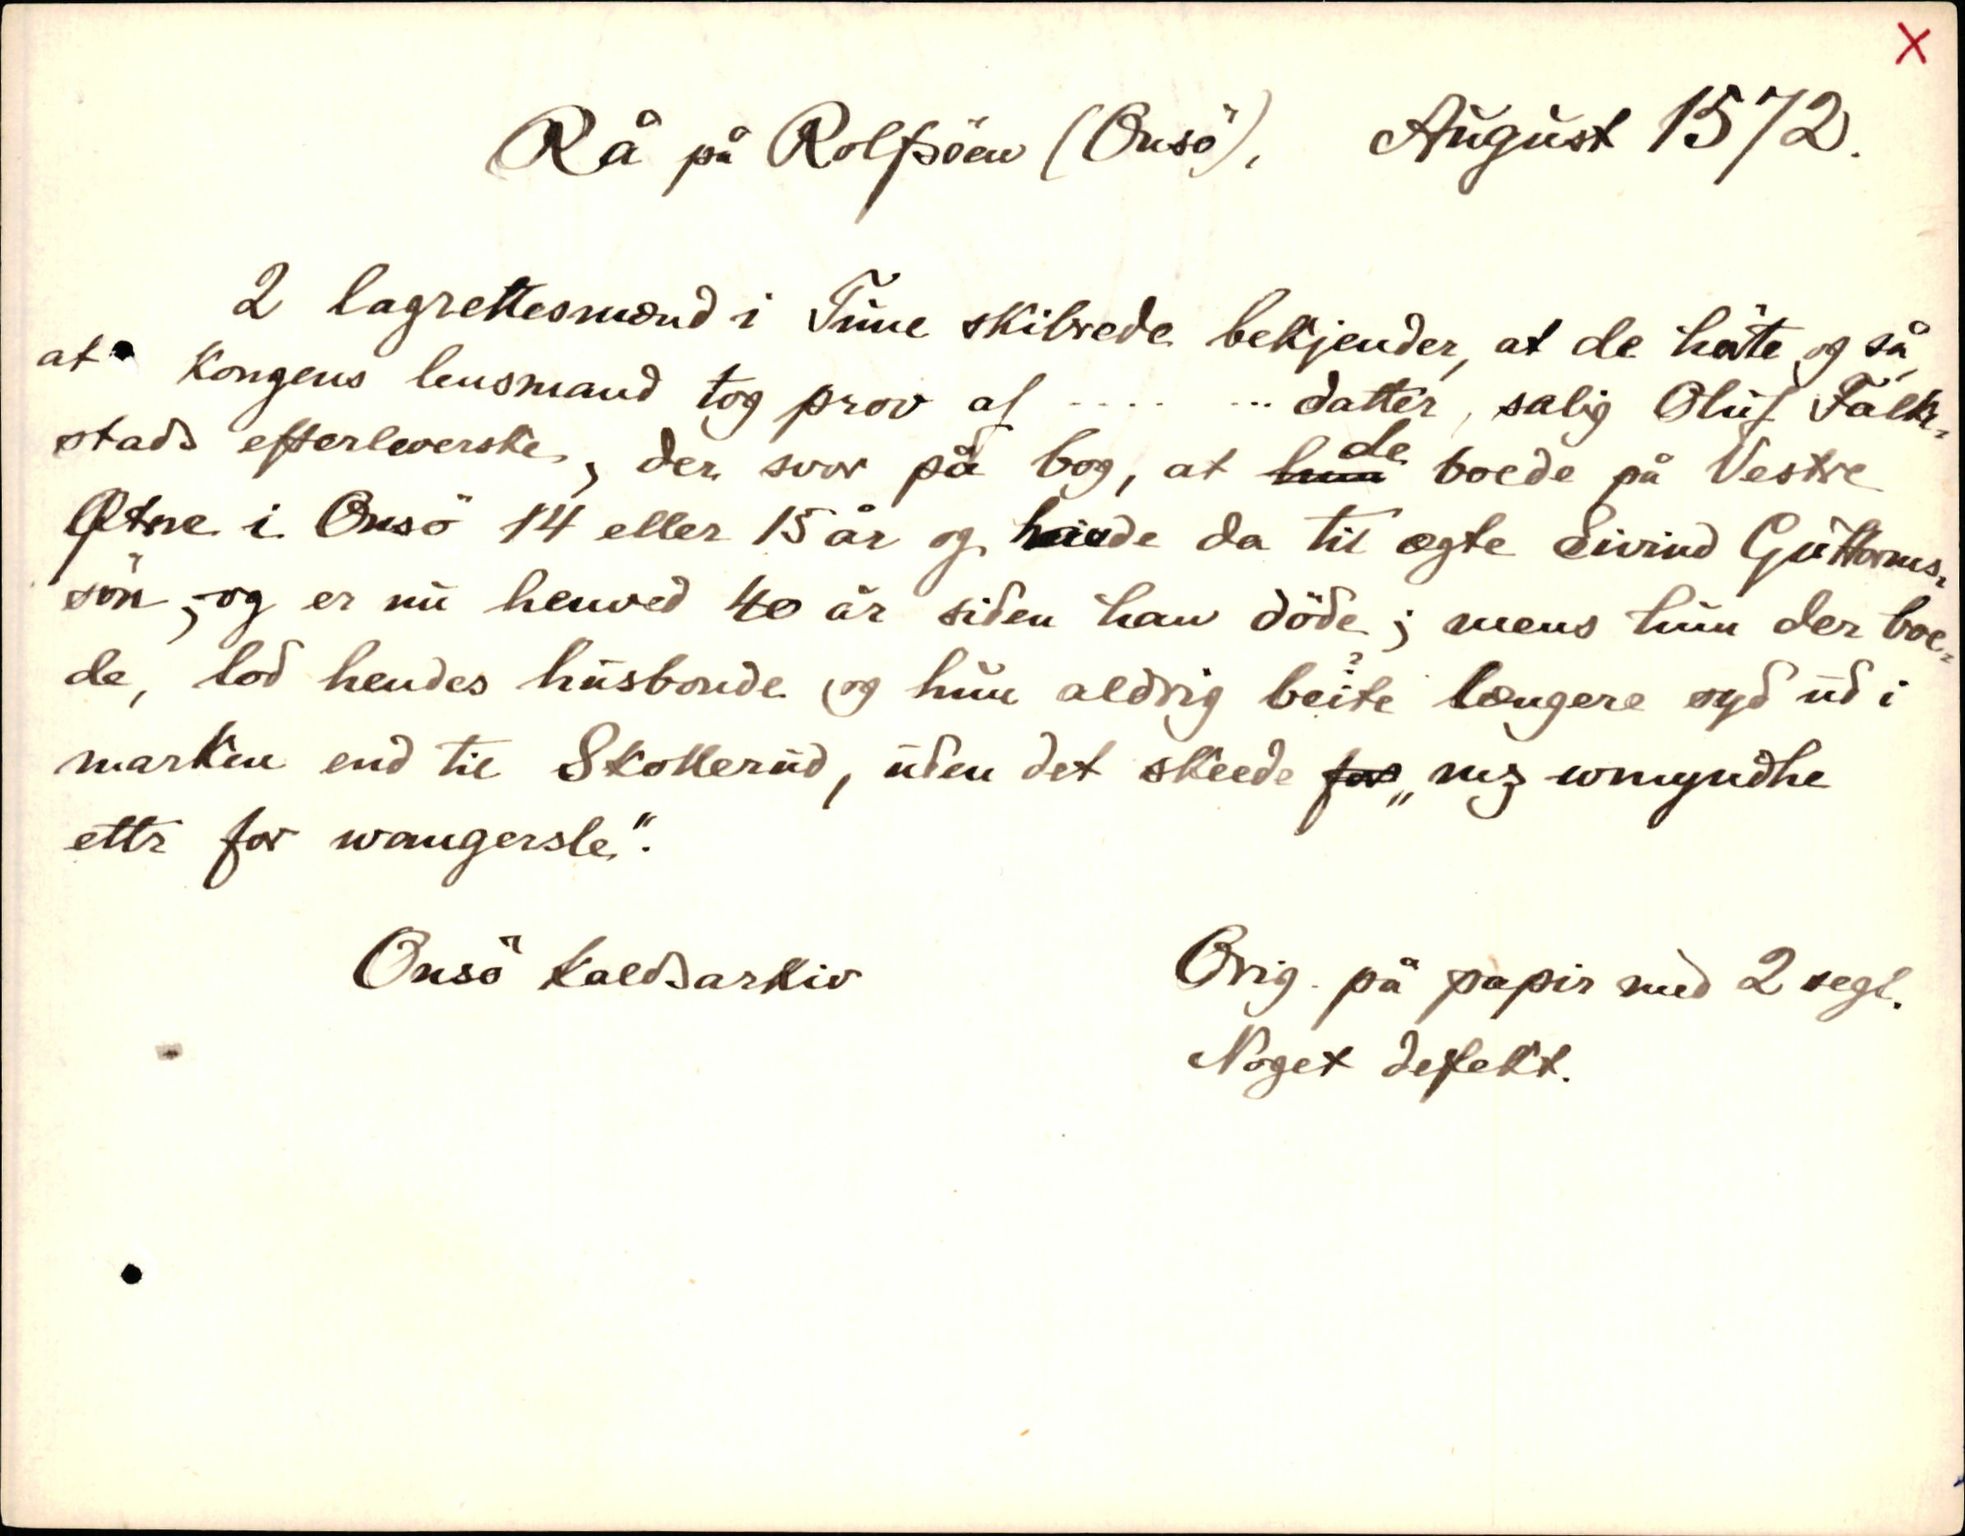 X
Rå på Rolfsöen (Onsö), August 1572.
2 lagrettesmænd i Tune skibrede bekjender, at de hörte og så,
at Kongens lensmand tog prov af .... ... datter, salig Oluf Falk-
stads efterleverske, der svor på bog, at de boede på Vestre
i Onsö 14 eller 15 år og havde da til ægte Eivind Guttorms-
sön, og er nu henved 40 år siden han döde; mens hun der boe-
de, lod hendes husbonde og hun aldrig beite længere syd ud i
marken end til Skollerud, uden det skeede for „mz wmyndhe
ettr for wangersle".
Onsö kaldsarkiv
Orig. på papir med 2 segl.
Noget defekt.